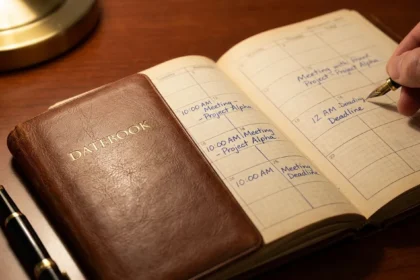 DATEBOOK
10:00 AM
Meeting
- Project Alpha
10:00 AM Meeting
- Project Alpha
10:00 AM Meeting
Deadline
Meeting with
Project - Project Alpha
12 AM
Deadline